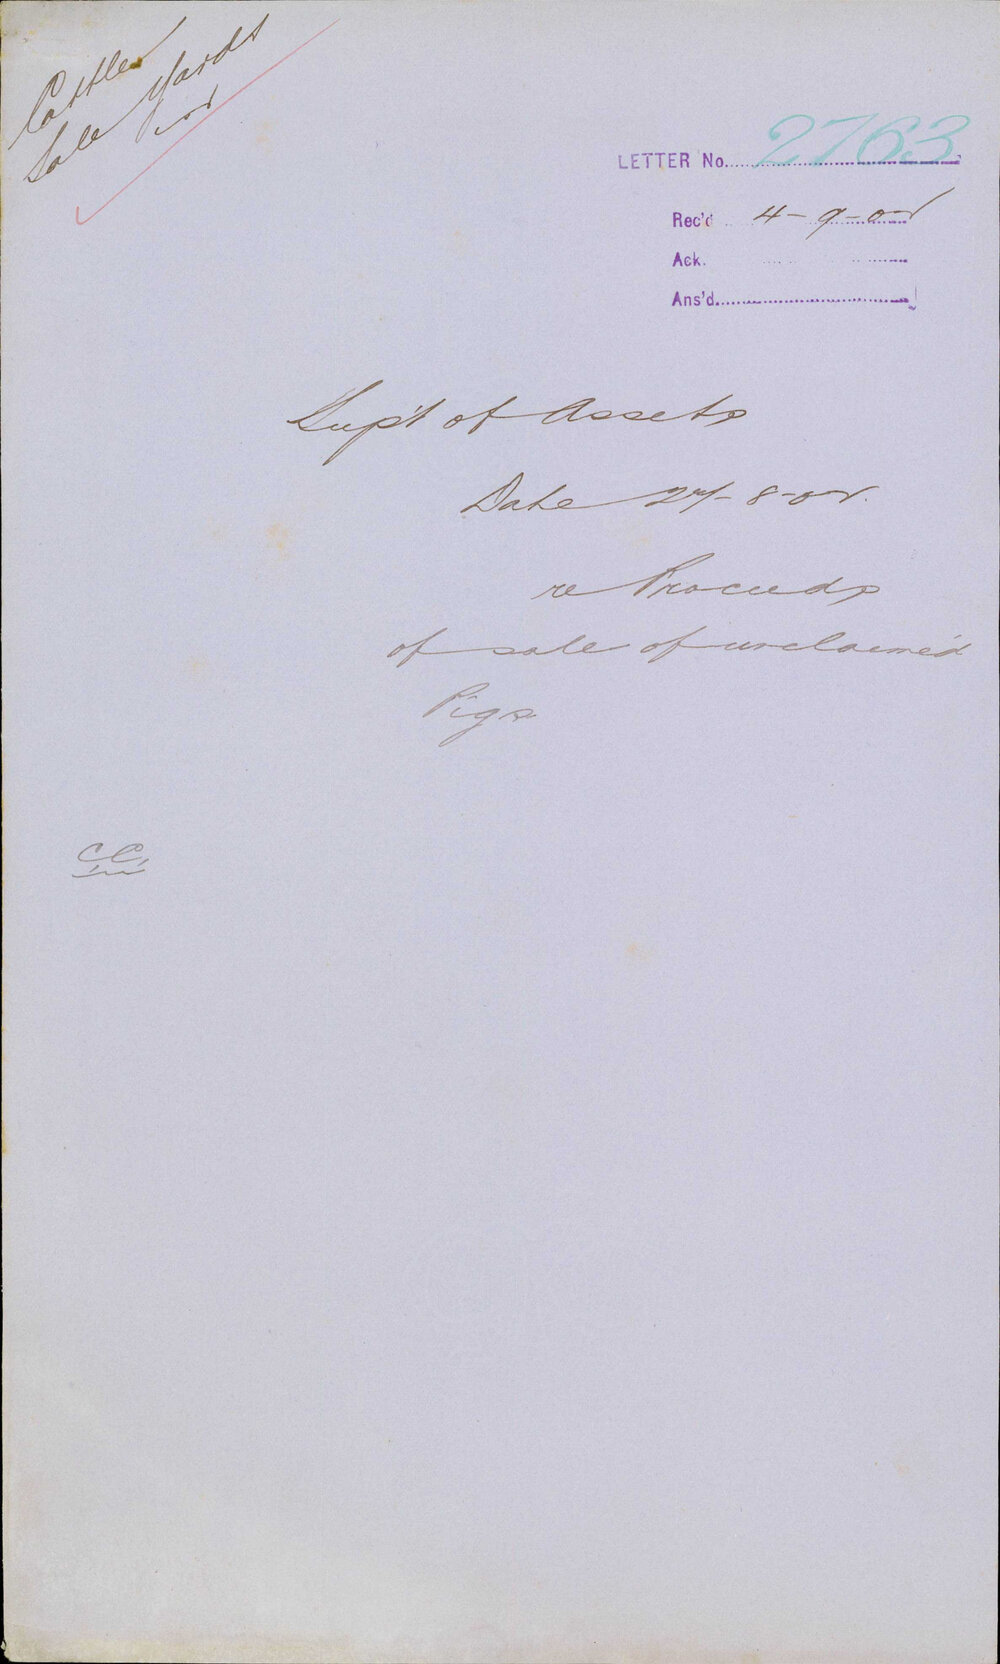 Cattle
Sale Yards
LETTER No. 2763
Rec'd 4-9-02
Ack.
Ans'd.
Sup't of Assets
Date 27-8-02.
re Proceeds
of sale of unclaimed
Pigs
C.C.